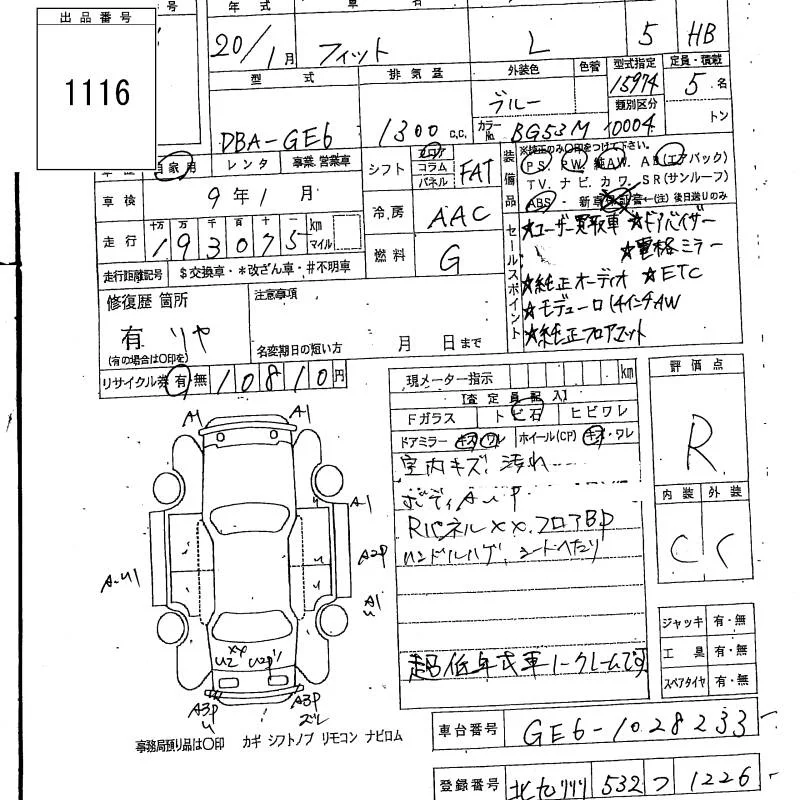 出品番号
1116
号 年式 車名
20/1月 フィット L 5 HB
型式 排気量 外装色 色替 型式指定 定員・積載
DBA-GE6 1300 c.c. ブルー 15974 5名
カラーNo. BG53M 類別区分 10004 トン
自家用 レンタ 事業 営業車
車検 9年1月
走行 十万 万 千 百 十 一 km マイル
193075
走行距離記号 $交換車・*改ざん車・#不明車
シフト フロア コラム パネル FAT
冷房 AAC
燃料 G
装備品 ※純正のみ○印をつけて下さい。
PS. PW. 純AW. AB(エアバック)
TV. ナビ. カワ. SR(サンルーフ)
ABS・新車保証書←(注)後日送りのみ
セールスポイント
★ユーザー買取車 ★ドアバイザー
★電格ミラー
★純正オーディオ ★ETC
★モデューロ14インチAW
★純正フロアマット
修復歴 箇所
有 リヤ
(有の場合は○印を)
注意事項
名変期日の短い方 月 日まで
リサイクル券 有・無 10810円
現メーター指示 km
[査定員記入]
Fガラス トビ石 ヒビワレ
ドアミラー キズ・ワレ ホイール(CP) キズ・ワレ
室内キズ 汚れ
ボディAUP
Rパネルxx.フロアBP
ハンドルハゲ、シートへたり
超低年式車ノークレームです
評価点
R
内装 外装
C C
ジャッキ 有・無
工具 有・無
スペアタイヤ 有・無
A1 A1
A1
A-U1 A2P
A1
U
XX
U2 U2P
A3P A3P
U ズレ
事務局預り品は○印 カギ シフトノブ リモコン ナビロム
車台番号 GE6-1028233
登録番号 北九州 532 つ 1226